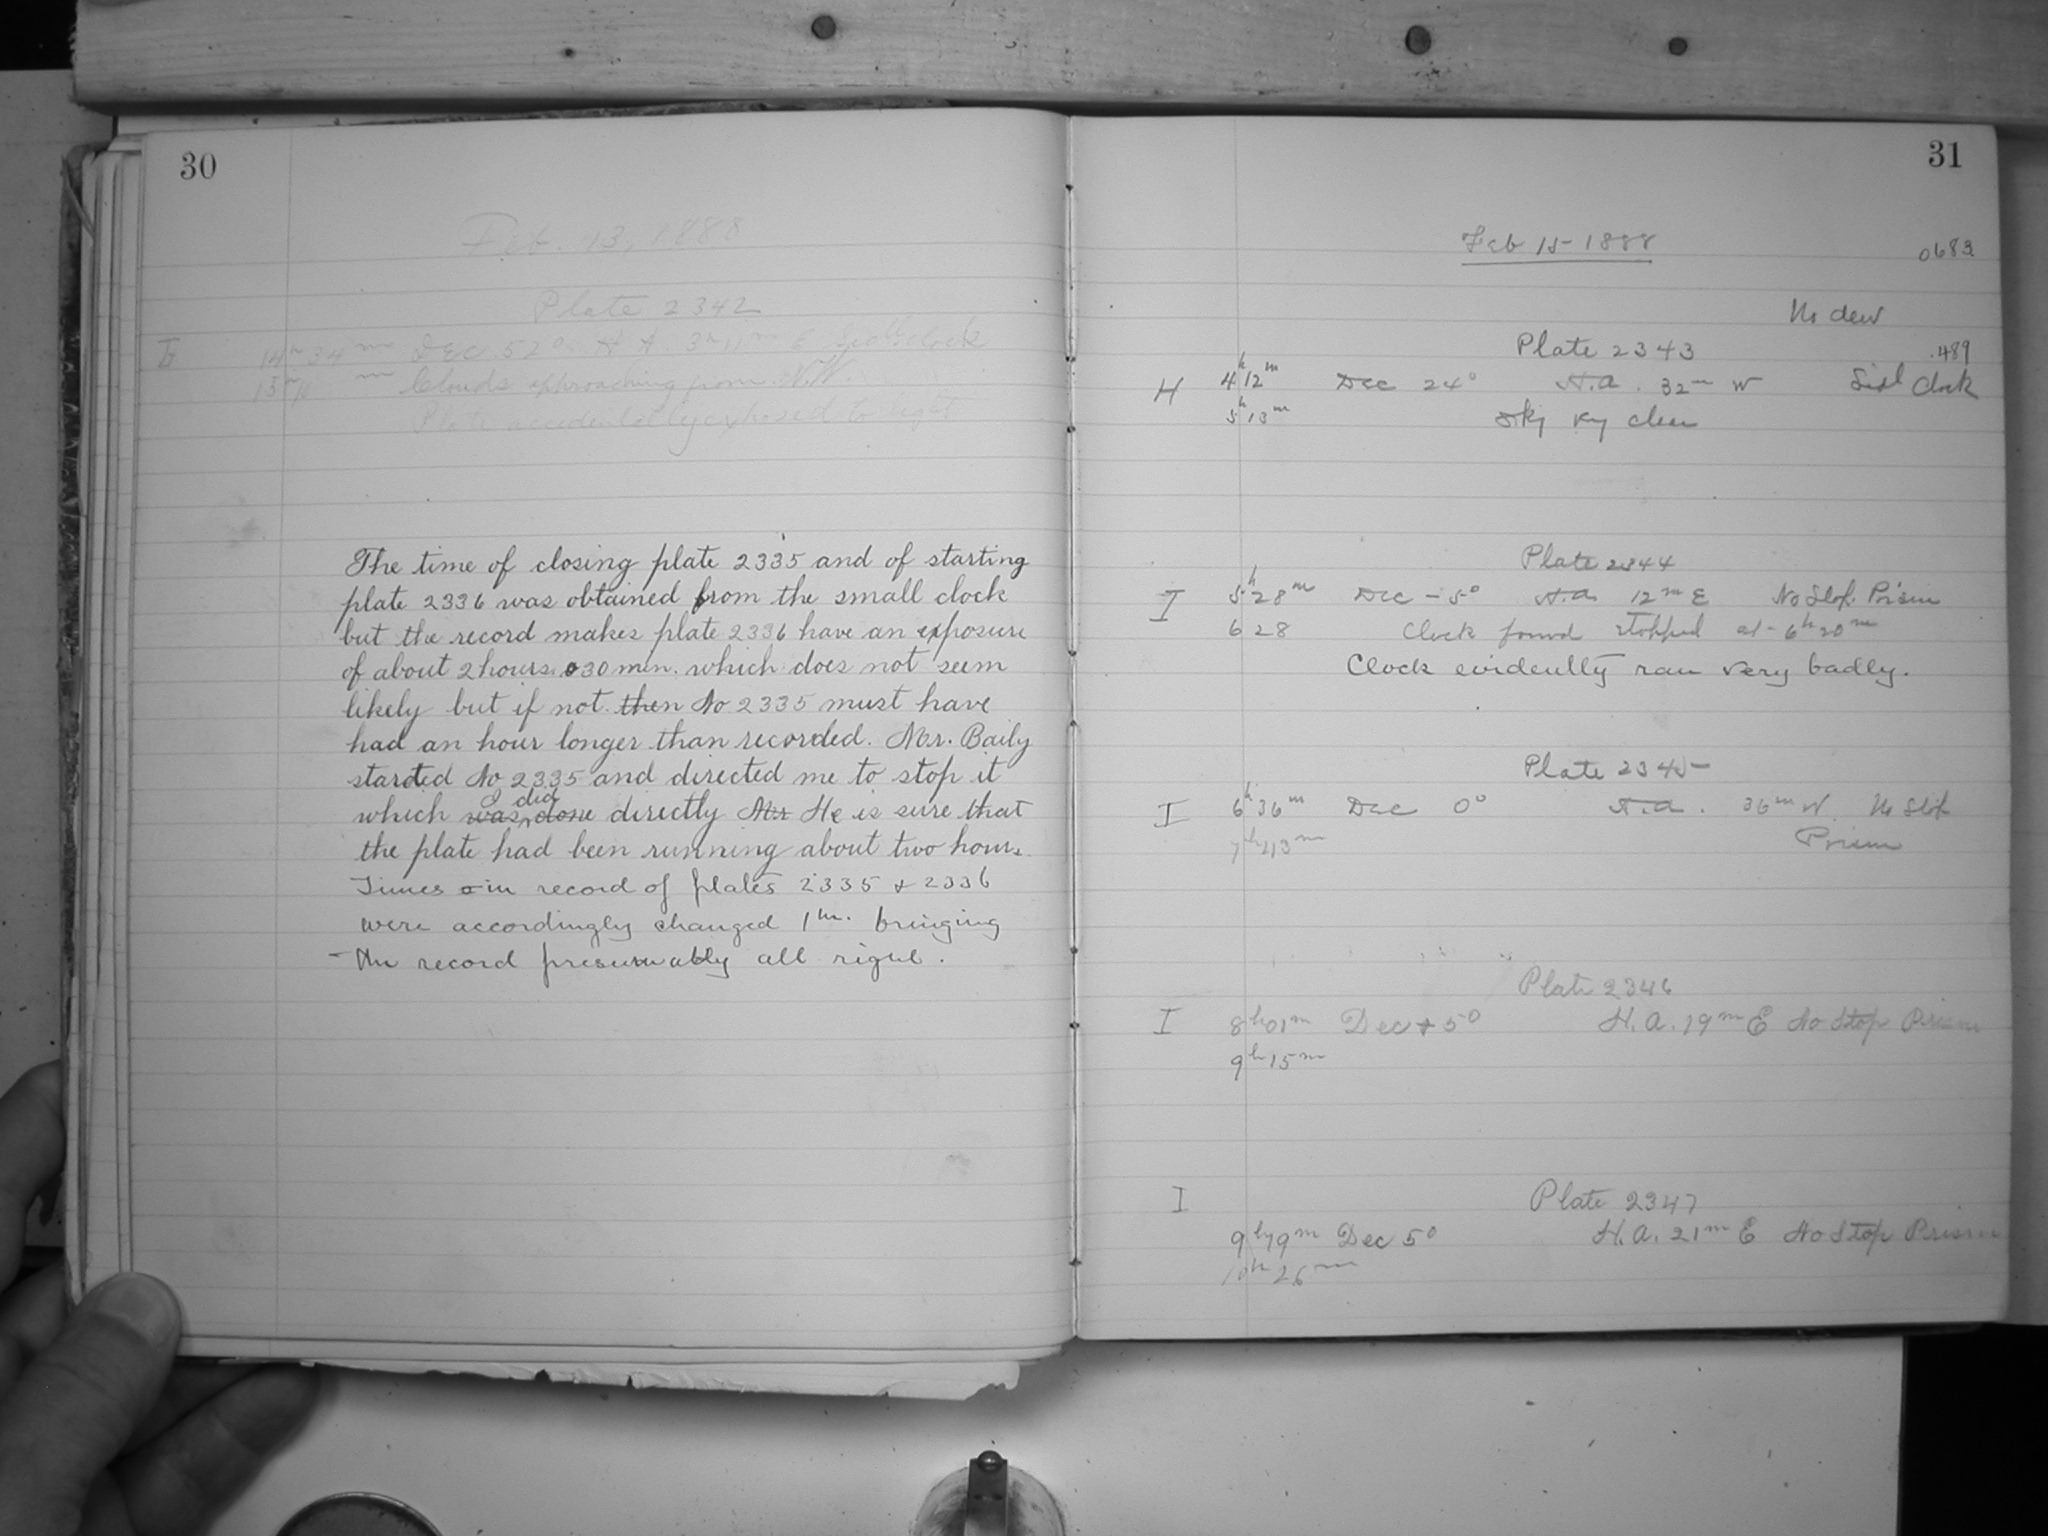 30
Feb. 13, 1888
Plate 2342
14h 34m Dec. 52° H A. 3h 11m E Sid. clock
Clouds approaching from N.W.
Plate accidentally exposed to light
The time of closing plate 2335 and of starting
plate 2336 was obtained from the small clock
but the record makes plate 2336 have an exposure
of about 2 hours 30 min. which does not seem
likely but if not then No 2335 must have
had an hour longer than recorded. Mr. Baily
started No 2335 and directed me to stop it
which was done I did directly Mr He is sure that
the plate had been running about two hours.
Times in record of plates 2335 & 2336
were accordingly changed 1 hr. bringing
the record presumably all right.
31
Feb 15 - 1888
0683
No dew
Plate 2343
.489
H 4h 12m Dec 24° H.A. 32m W Sidl Clock
5h 13m Sky very clear
Plate 2344
I 5h 28m Dec -5° H.A. 12m E No Stop. Prism
6 28 Clock found stopped at 6h 20m
Clock evidently ran very badly.
Plate 2345
I 6h 36m Dec 0° H.A. 36m W. No Stop
7h 43m Prism
Plate 2346
I 8h 01m Dec + 5° H.A. 19m E No Stop Prism
9h 15m
I Plate 2347
9h 19m Dec 5° H.A. 21m E No Stop Prism
10h 26m